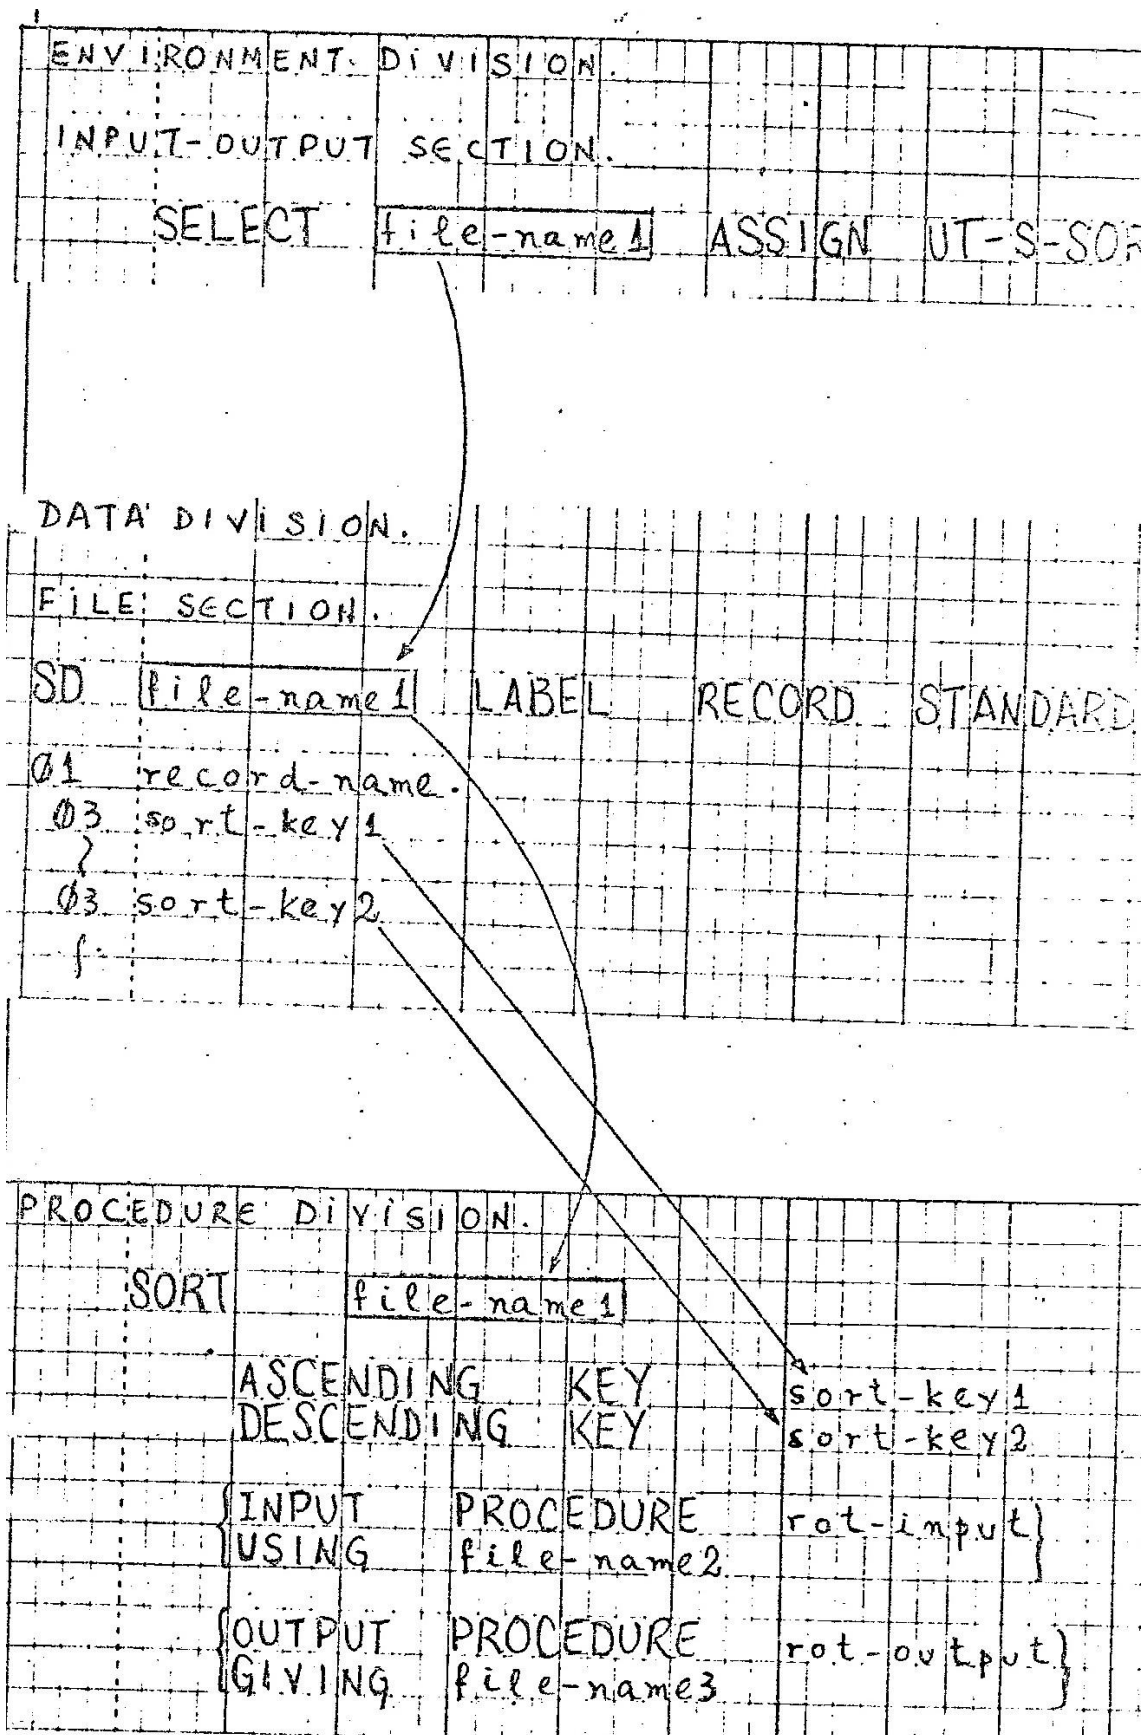 ENVIRONMENT DIVISION.
INPUT-OUTPUT SECTION.
SELECT file-name1 ASSIGN UT-S-SOR
DATA DIVISION.
FILE SECTION.
SD file-name1 LABEL RECORD STANDARD.
Ø1 record-name.
Ø3 sort-key1
Ø3 sort-key2
PROCEDURE DIVISION.
SORT file-name1
ASCENDING KEY sort-key1
DESCENDING KEY sort-key2
{INPUT PROCEDURE rot-input}
{USING file-name2}
{OUTPUT PROCEDURE rot-output}
{GIVING file-name3}